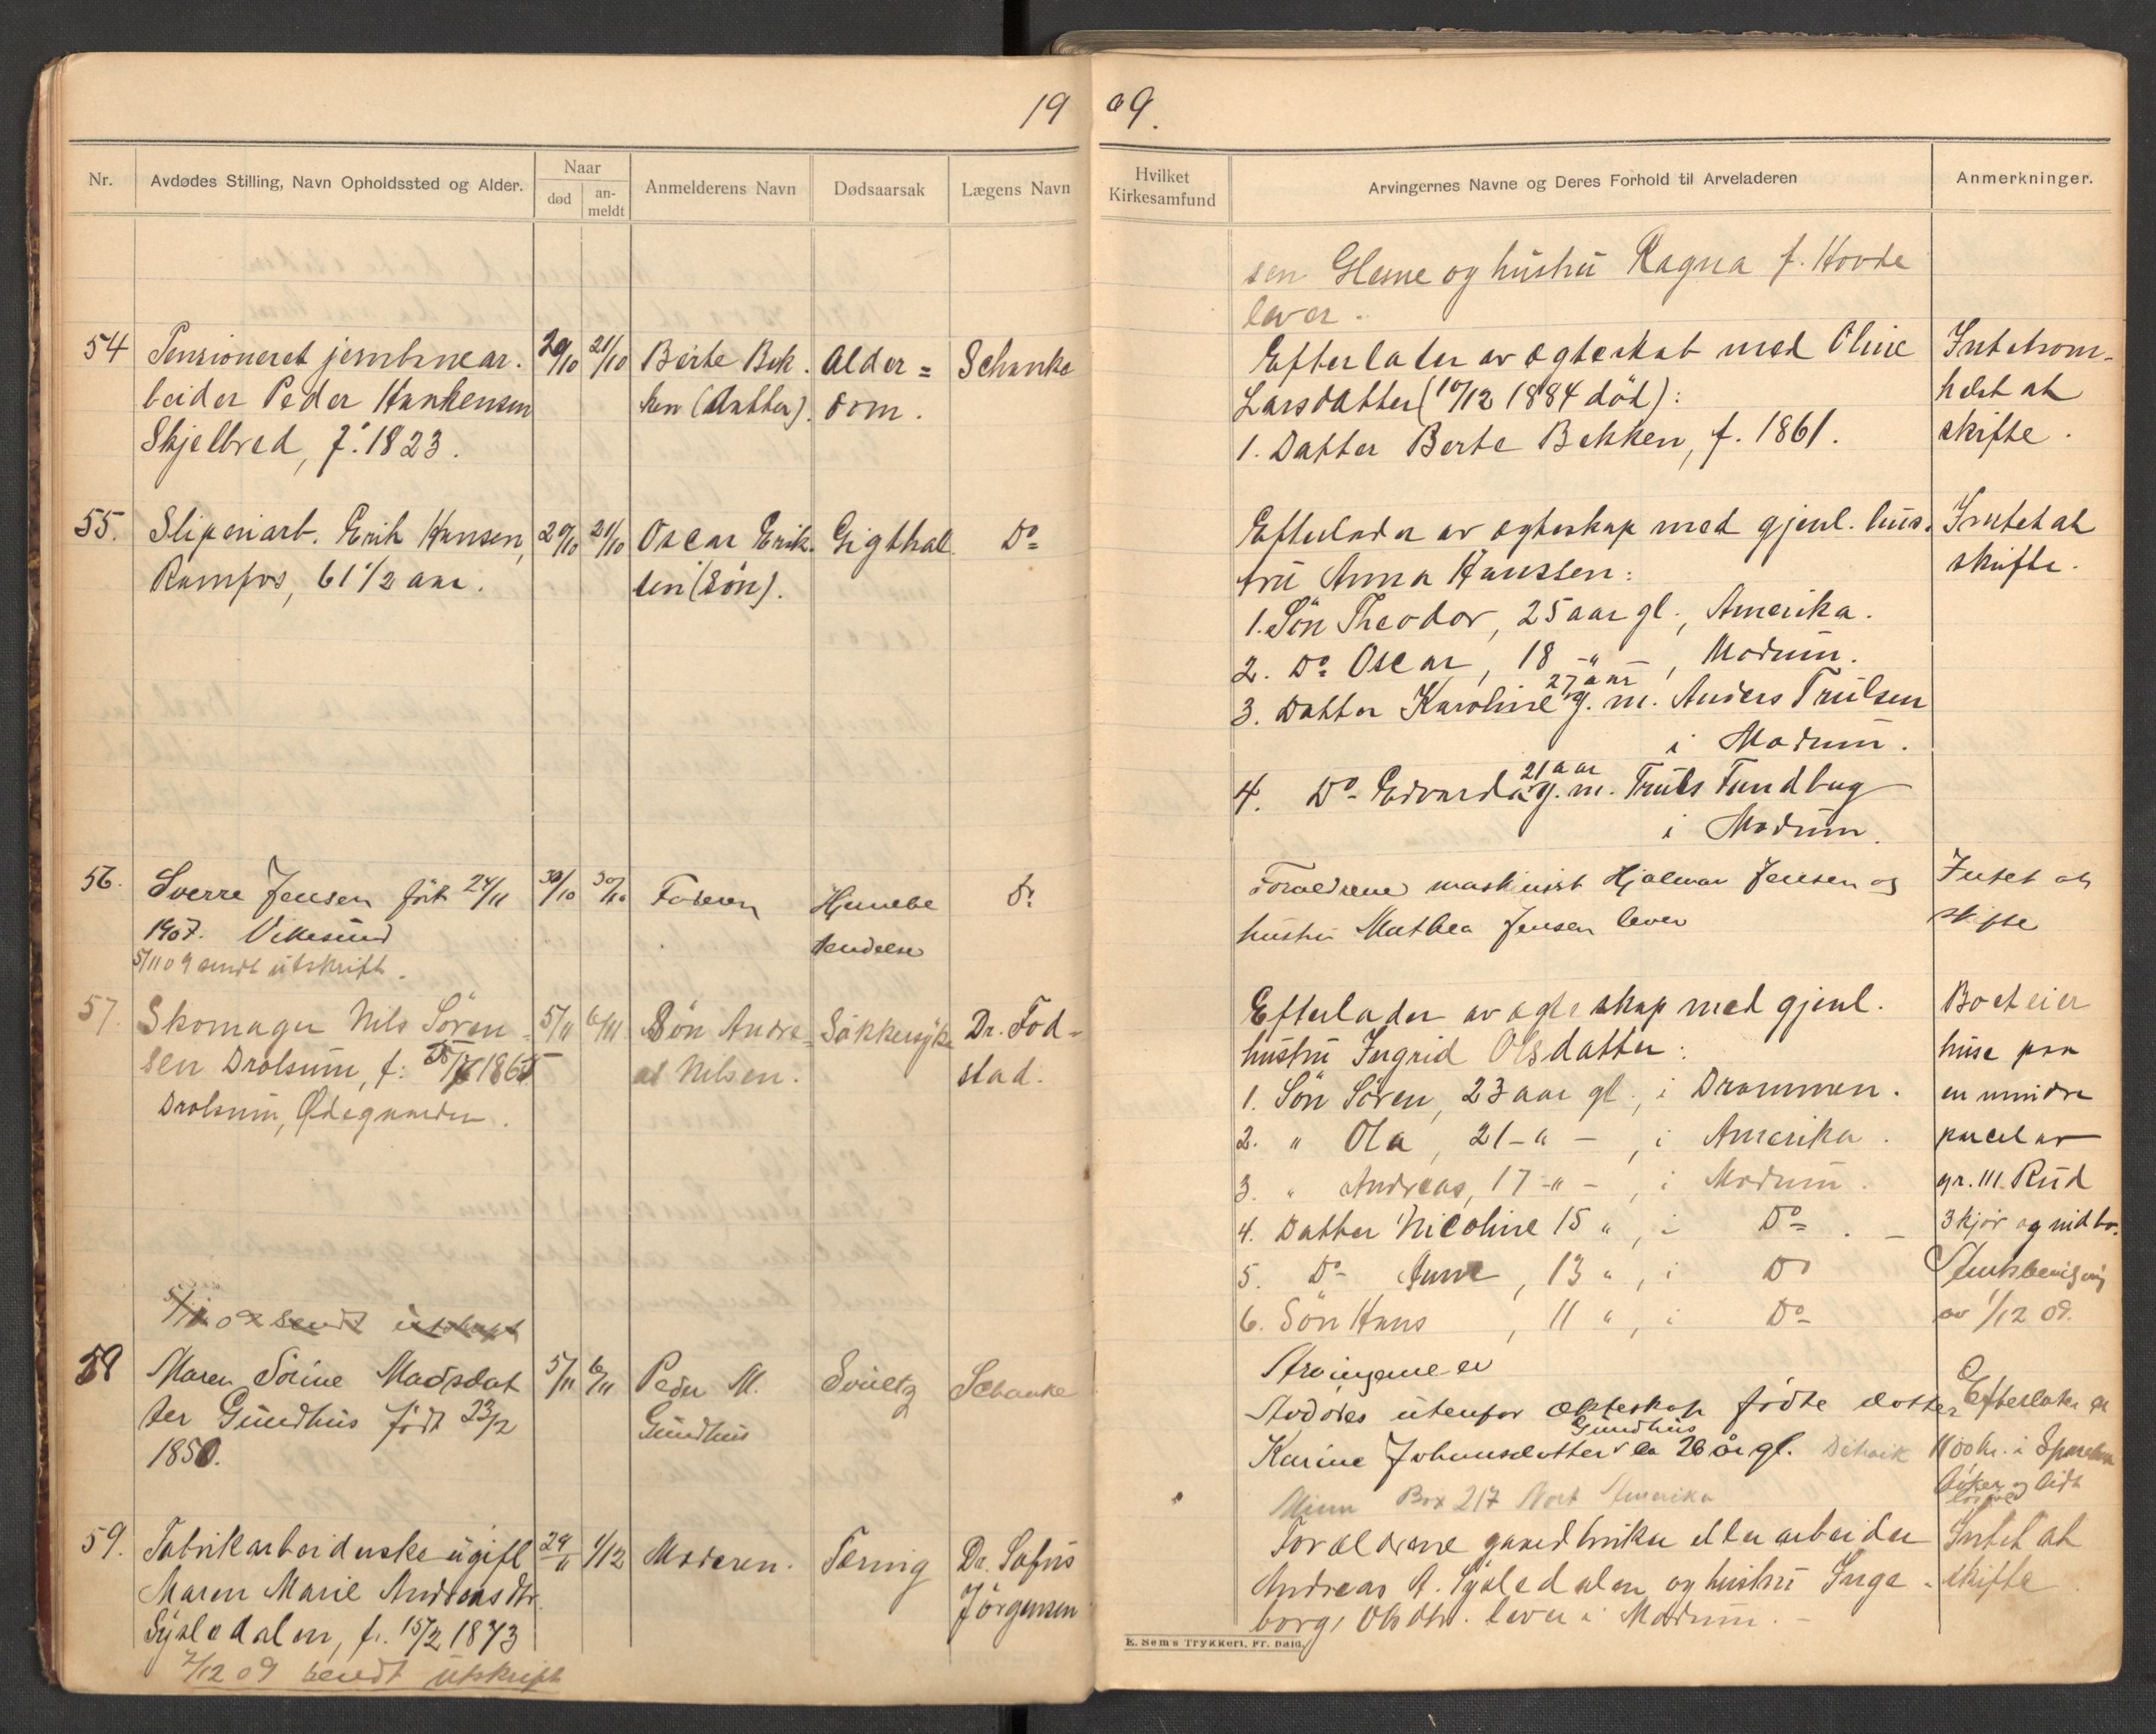 19
09.
Nr.
Avdødes Stilling, Navn Opholdssted og Alder.
Naar
død
an-
meldt
Anmelderens Navn
Dødsaarsak
Lægens Navn
Hvilket
Kirkesamfund
Arvingernes Navne og Deres Forhold til Arveladeren
Anmerkninger.
sen Glesne og hustru Ragna f. Hovde
lever.
54 Pensioneret jernbanear. 20/10 21/10 Berte Bek. Alder= Schanke
beider Peder Hankensen ken (datter). dom.
Skjelbred, f. 1823.
Efterlader av egteskab med Oline
Larsdatter (10/12 1884 död):
1. Datter Berte Bekken, f. 1861.
Intetsom-
helst at
skifte.
55. Sliperiarb. Erik Hansen, 20/10 21/10 Oscar Erik. Gigthal. Do
Ramfos, 61 1/2 aar. sen (Sön).
Efterlader av egteskap med gjenl. hus.
tru Anna Hanssen:
1. Sön Theodor, 25 aar gl., Amerika.
2. Do Oscar, 18 -"-, Modum.
27 aar
3. Datter Karoline g. m. Anders Trulsen
i Modum.
21 aar
4. Do Edvarda g. m. Truls Fundbug
i Modum.
Intet at
skifte.
56. Sverre Jensen født 24/11 30/10 30/10 Faderen Hjernebe Do
1907. Vikesund tendelse
5/11 09 sendt utskrift.
Forældrene maskinist Hjalmar Jensen og
hustru Mathea Jensen lever
Intet at
skifte
57. Skomager Nils Sören- 5/11 6/11 Sön Andre- Sukkersyke Dr. Fod-
sen Drolsum, f: 1865 as Nilsen. stad.
Drolsum, Ødegaarden.
Efterlader av egteskap med gjenl.
hustru Ingrid Olsdatter:
1. Sön Sören, 23 aar gl., i Drammen.
2. " Ola, 21 -"-, i Amerika.
3. " Andreas, 17 -"-, i Modum.
4. Datter Nicoline 15 ", i Do.
5. Do Anne, 13 ", i Do
6. Sön Hans, 11 ", i Do
Boet eier
huse paa
en mindre
parcel av
gr. 111 Rud
3 kjør og
av 1/12 09.
5/11 09 sendt utskrift
58 Maren Sörine Madsdat 5/11 6/11 Peder M. Svulst Schanke
ter Gundhus født 23/2 Gundhus
1850.
Arvingerne er
Avdødes utenfor ekteskap fødte datter
Gundhus
Karine Johansdatter ca 26 år gl. Detroit
Minn Box 217 Nort Amerika
Efterlater
1100 kr. i Spareban
løsøre
59. Fabrikarbeiderske ugift 29/11 1/12 Moderen. Tæring Dr. Sofus
Maren Marie Andreasdtr. Jörgensen
Sysledalen, f. 15/2 1873
2/12 09 sendt utskrift
Forældrene gaardbruker eller arbeider
Andreas A. Sysledalen og hustru Inge-
borg Olsdtr. lever i Modum.
Intet at
skifte
E. Sem's Trykkeri, Fr. Hald.